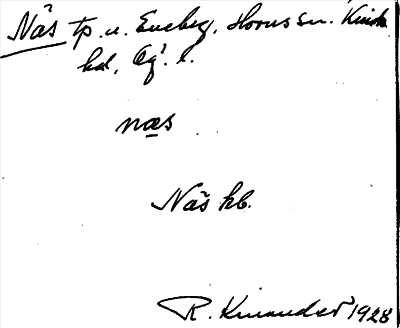 Näs tp. u. Eneby, Horns sn. Kinda
hd, Ög. l.
næs
Näs hb.
R. Kinander 1928